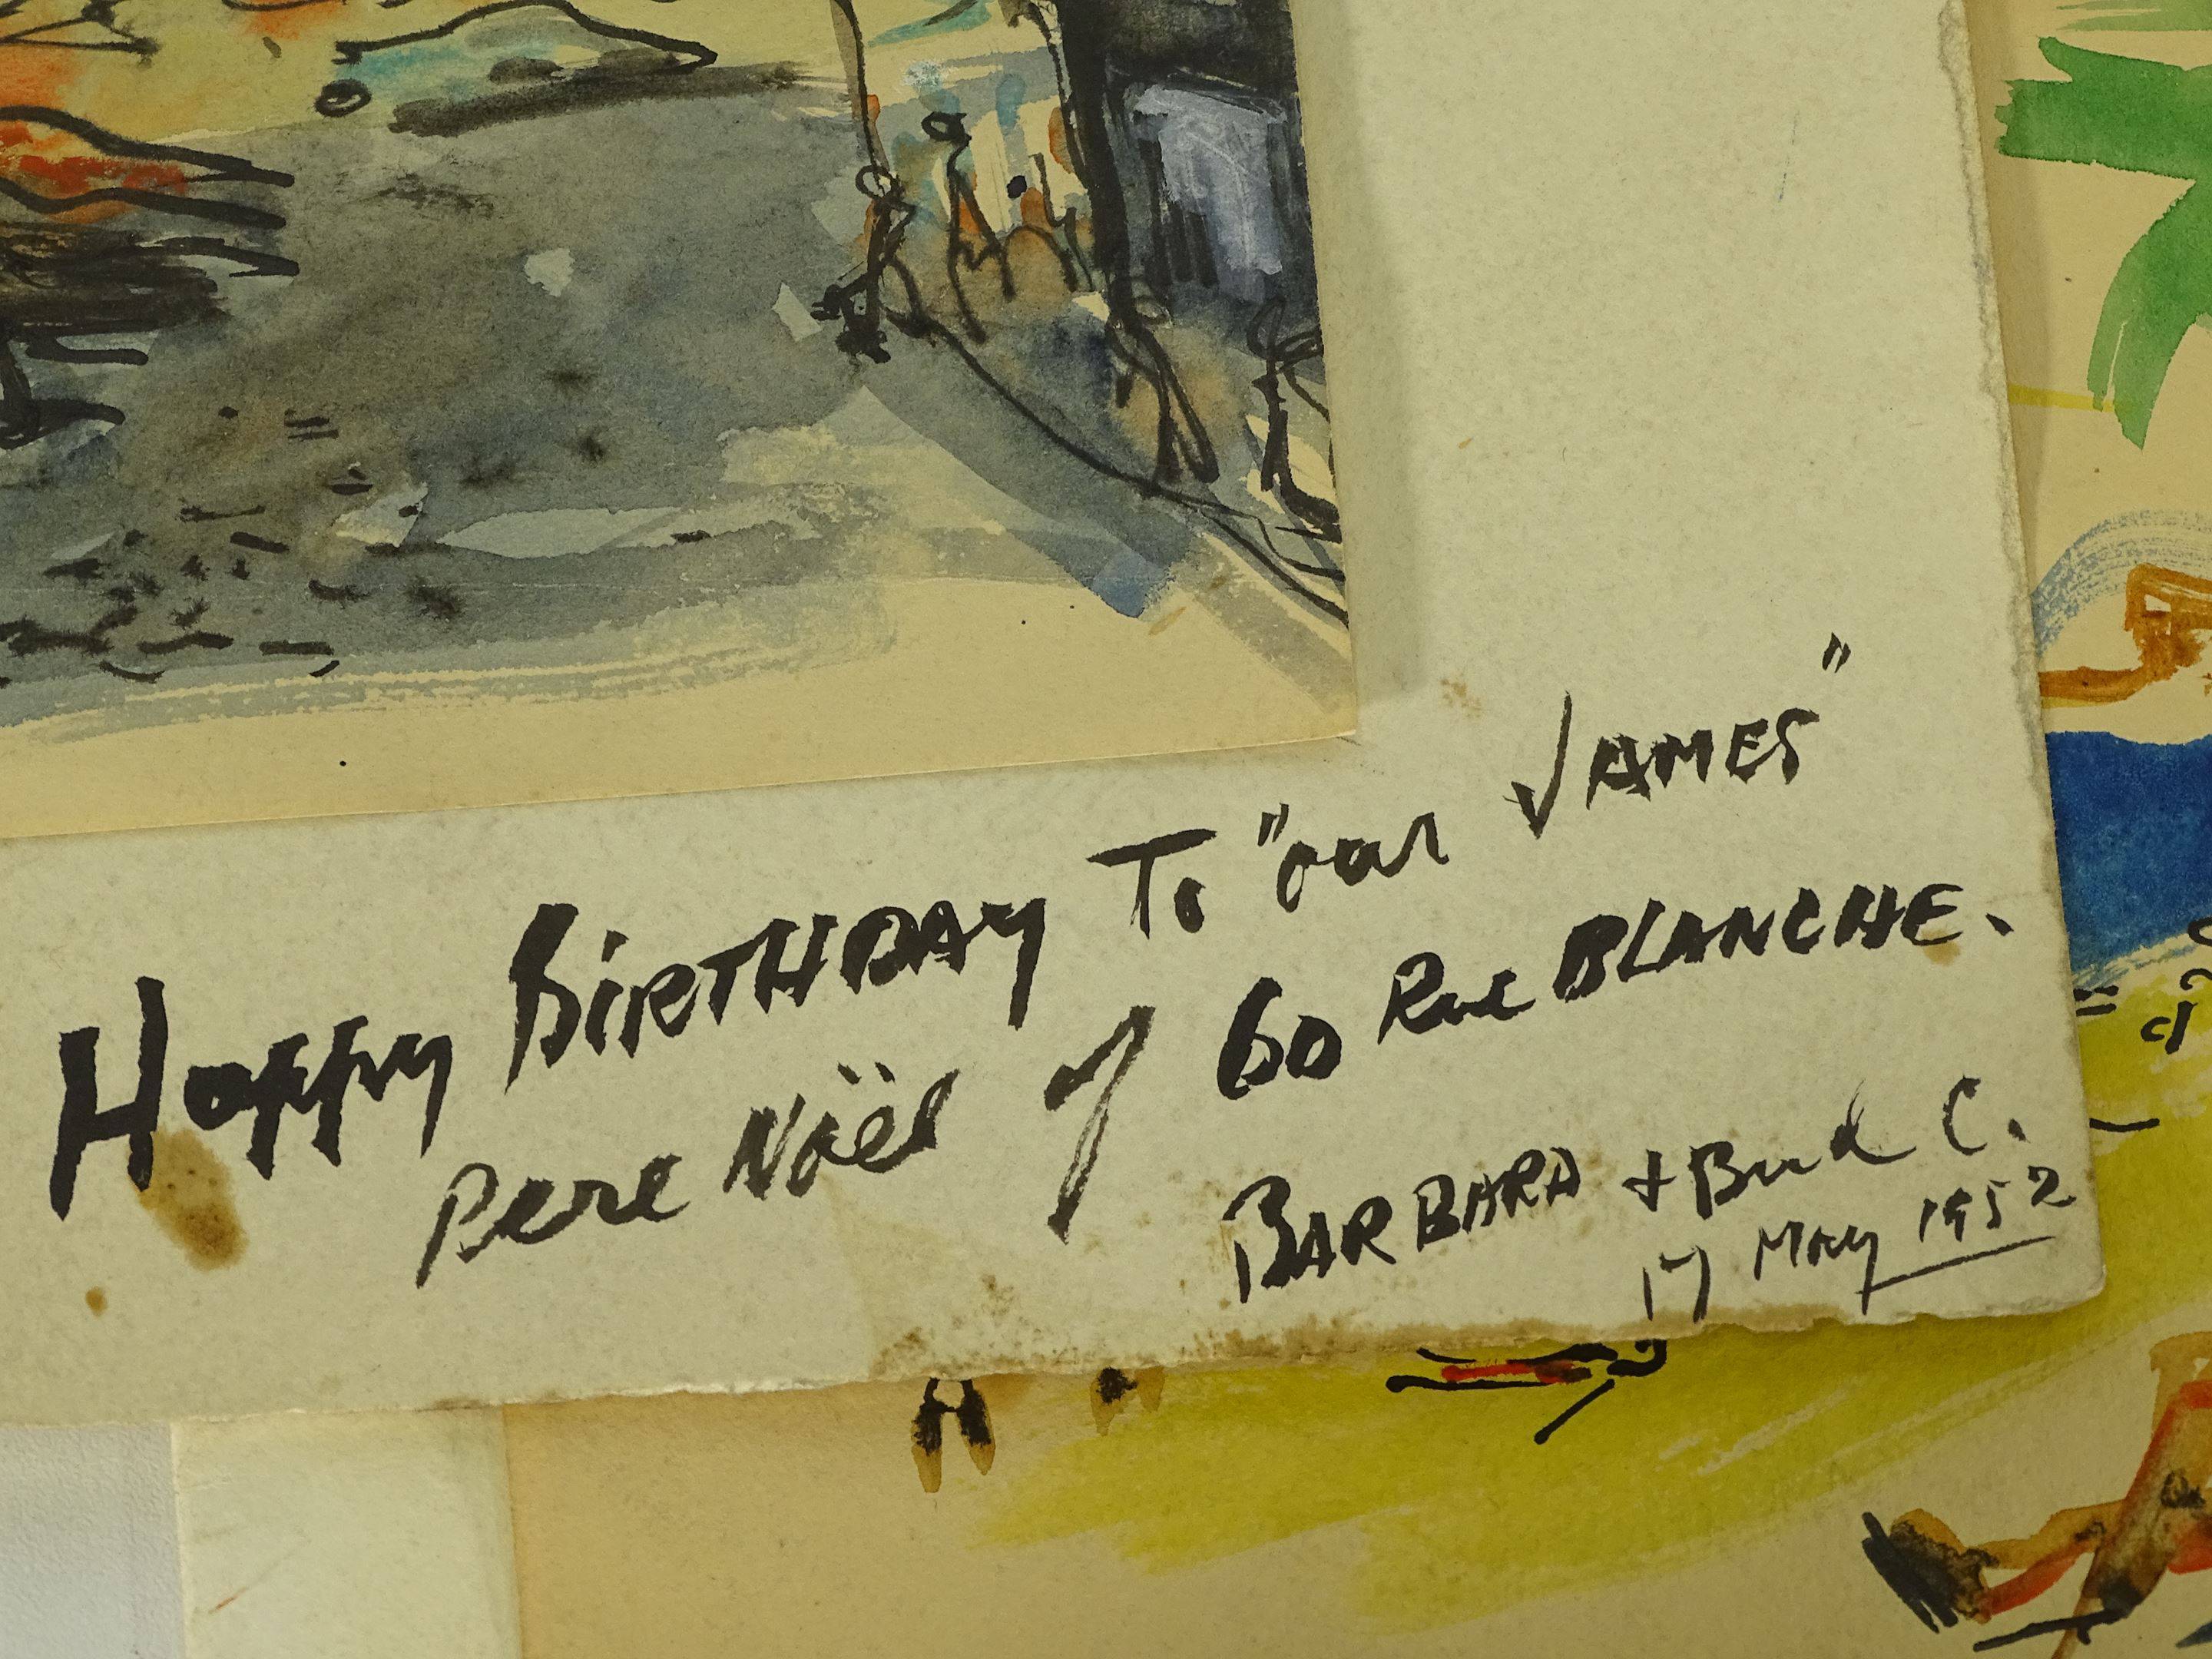 Happy BiRTHDAY To "our JAMES"
Pere Noël of 60 Rue BLANCHE.
BARBARA + Bud C.
17 May 1952